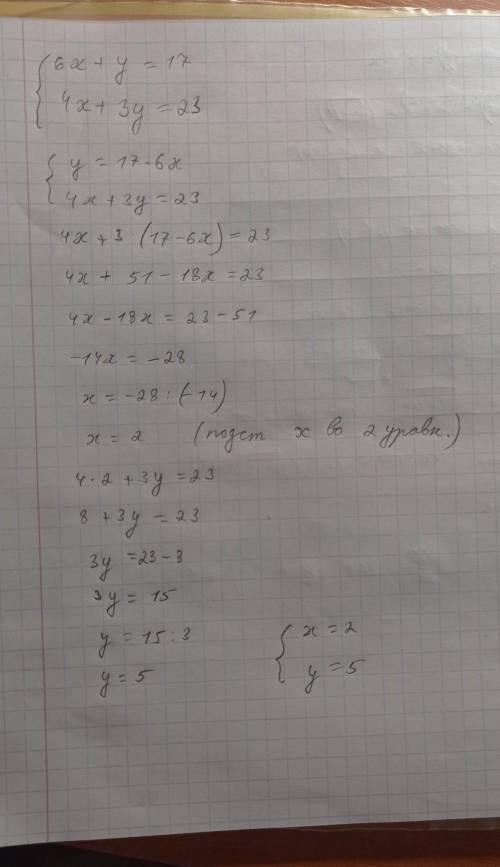 6x + y = 17
4x + 3y = 23
y = 17 - 6x
4x + 3y = 23
4x + 3 · (17 - 6x) = 23
4x + 51 - 18x = 23
4x - 18x = 23 - 51
-14x = -28
x = -28 : (-14)
x = 2 (подст x во 2 уравн.)
4 · 2 + 3y = 23
8 + 3y = 23
3y = 23 - 8
3y = 15
y = 15 : 3
y = 5
x = 2
y = 5